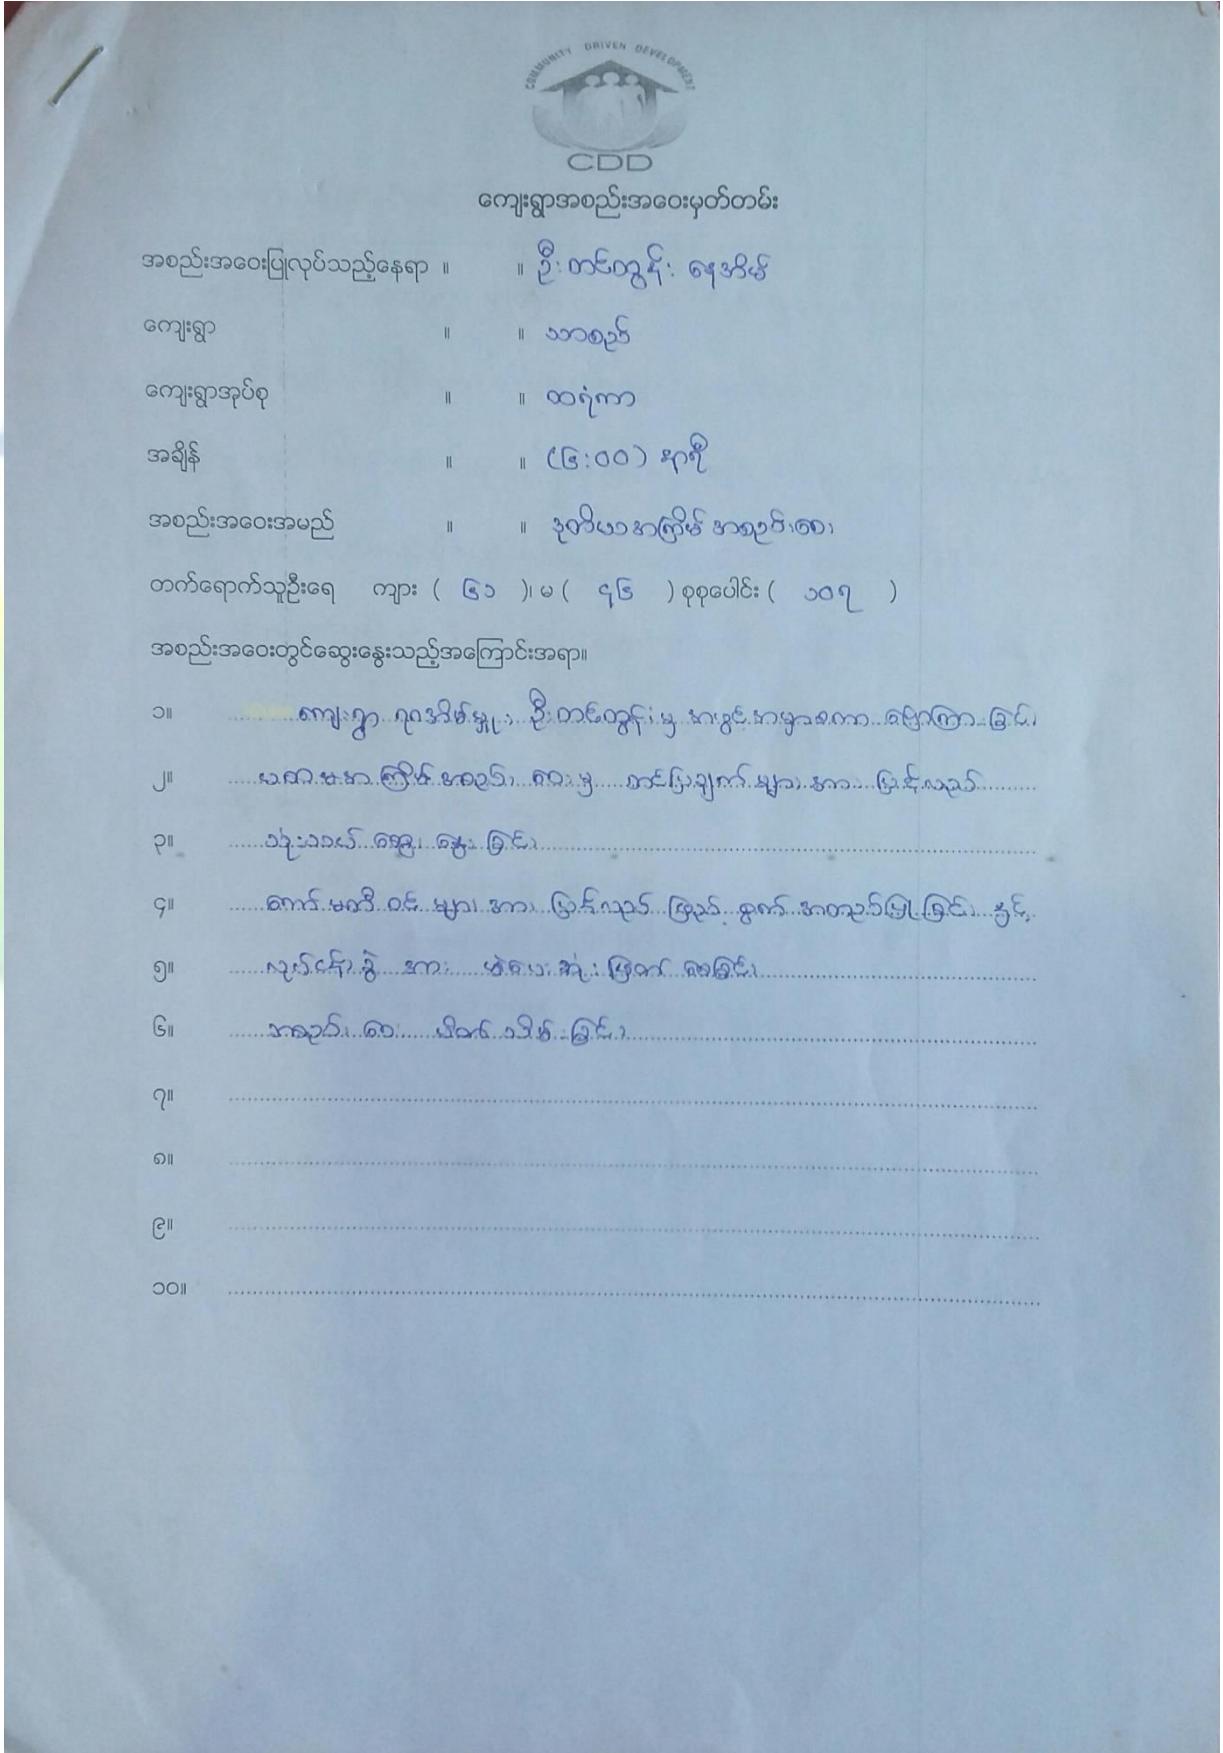 COMMUNITY DRIVEN DEVELOPMENT
CDD
ကျေးရွာအစည်းအဝေးမှတ်တမ်း
အစည်းအဝေးပြုလုပ်သည့်နေရာ ။ ။ ဦးတင်ထွန်း နေအိမ်
ကျေးရွာ ။ ။ သာစည်
ကျေးရွာအုပ်စု ။ ။ ထရံကာ
အချိန် ။ ။ (၆:၀၀) နာရီ
အစည်းအဝေးအမည် ။ ။ ဒုတိယအကြိမ် အစည်းအဝေး
တက်ရောက်သူဦးရေ ကျား ( ၆၁ )၊ မ ( ၄၆ ) စုစုပေါင်း ( ၁၀၇ )
အစည်းအဝေးတွင်ဆွေးနွေးသည့်အကြောင်းအရာ။
၁။ ကျေးရွာ ရာအိမ်မှူး ဦးတင်ထွန်းမှ အဖွင့်အမှာစကား ပြောကြားခြင်း
၂။ ပထမအကြိမ် အစည်းအဝေးမှ တင်ပြချက်များအား ပြန်လည်
၃။ သုံးသပ် ဆွေးနွေးခြင်း
၄။ ကော်မတီဝင်များအား ပြန်လည် ဖြည့်စွက် အတည်ပြုခြင်း နှင့်
၅။ လုပ်ငန်းခွဲ အား မဲပေးဆုံးဖြတ်စေခြင်း
၆။ အစည်းအဝေး ပိတ်သိမ်းခြင်း
၇။
၈။
၉။
၁၀။